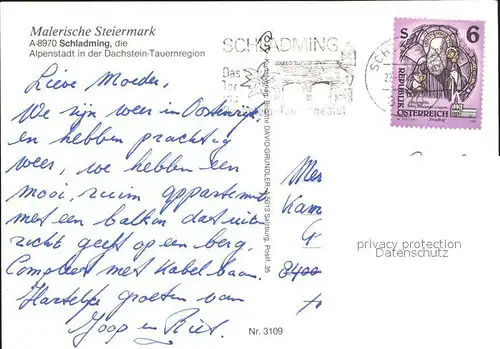 Malerische Steiermark
A-8970 Schladming, die
Alpenstadt in der Dachstein-Tauernregion
SCHLADMING
Das
S 6
REPUBLIK
ÖSTERREICH
Lieve Moeder,
We zijn weer in Oostenrijk
en hebben prachtig
weer, we hebben een
mooi, ruim appartement
met een balkon dat uit
zicht geeft op een berg.
Compleet met Kabelbaan.
Hartelijke groeten van
Joop en Riet.
DAVID GRÜNDLER, A-5013 Salzburg, Postf. 35
8400
privacy protection
Datenschutz
Nr. 3109